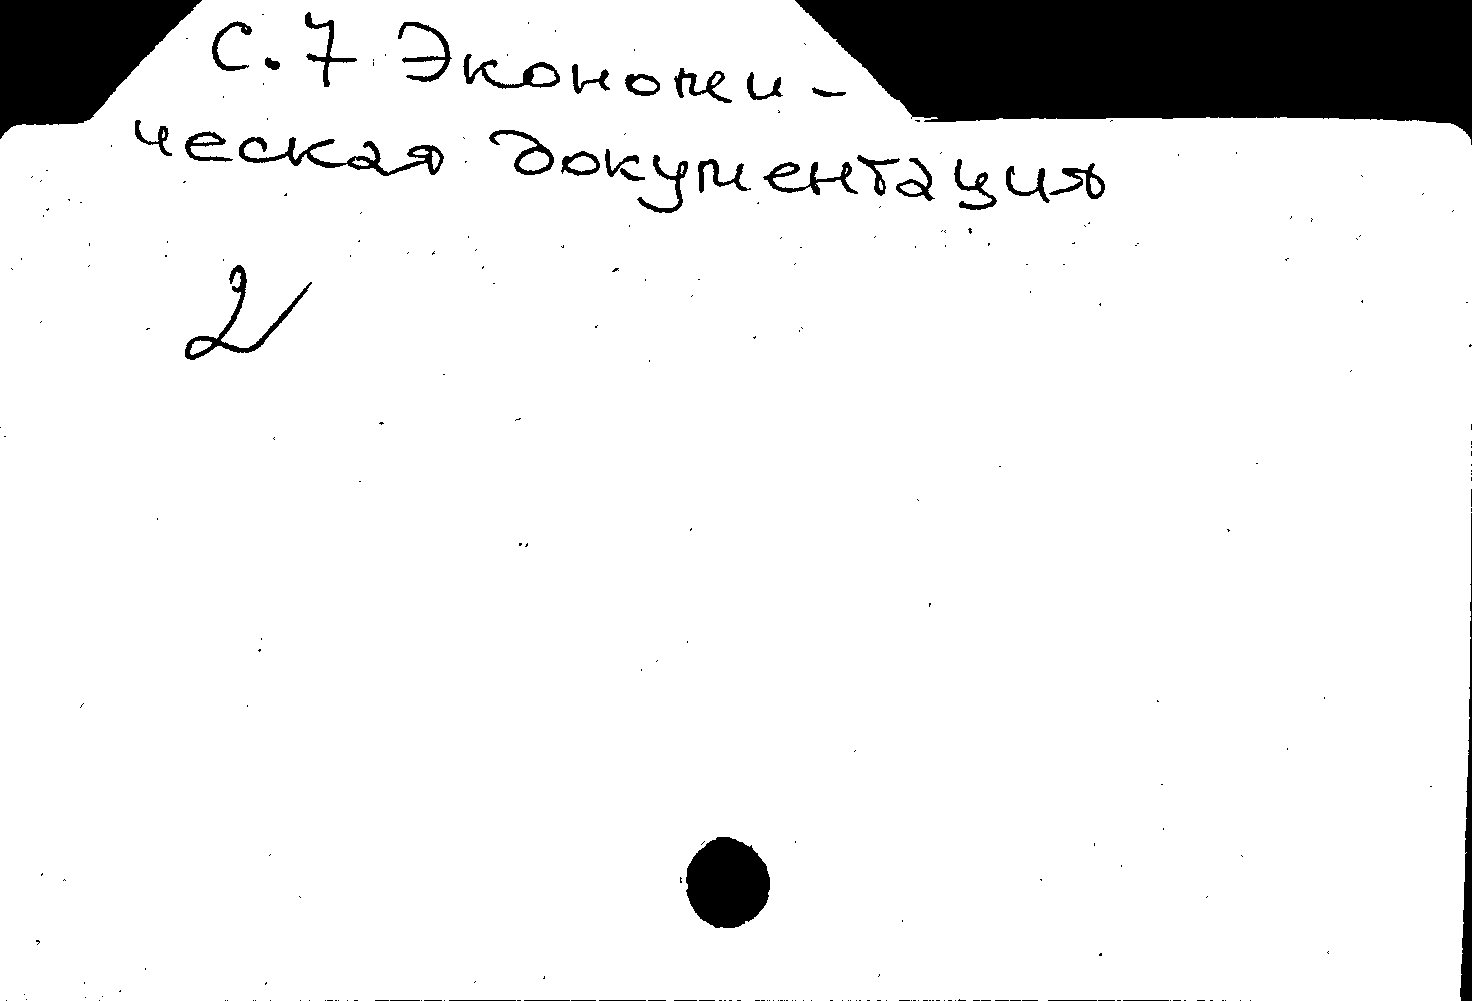 С.7 Экономи-
ческая документация
2